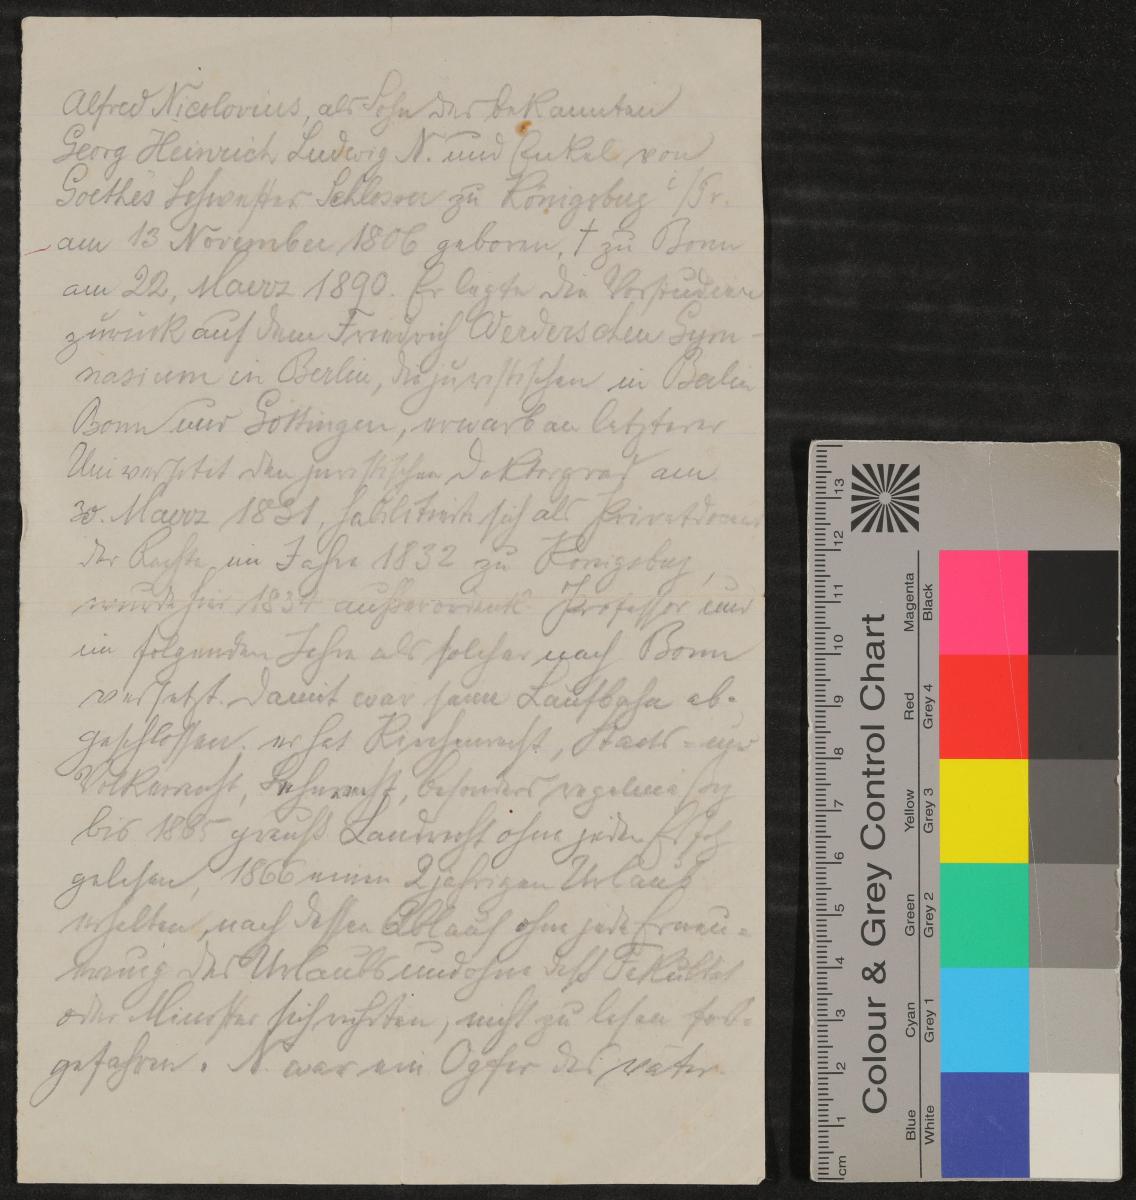 Alfred Nicolovius, als Sohn des bekannten
Georg Heinrich Ludwig N. und Enkel von
Goethes Schwester Schlosser zu Königsberg i/Pr.
am 13 November 1806 geboren, † zu Bonn
am 22, Maerz 1890. Er legte die Vorstudien
zurück auf dem Friedrich Werderschen Gym-
nasium in Berlin, die juristischen in Berlin
Bonn und Göttingen, erwarb an letzterer
Universitet den juristischen Doktorgrad am
30. Maerz 1831, habilitierte sich als Privatdocent
der Rechte im Jahre 1832 zu Königsberg,
wurde hier 1834 außerordentl. Professor und
im folgenden Jahre als solcher nach Bonn
versetzt. Damit war seine Laufbahn ab-
geschlossen. er hat Kirchenrecht, Staats- und
Völkerrecht, Lehnrecht, besonders regelmessig
bis 1865 preuß Landrecht ohne jeden Erfolg
gelesen, 1866 einen 2jährigen Urlaub
erhalten, nach dessen Ablauf ohne jede Erneu-
erung des Urlaubs und ohne dass Fakultät
oder Minister sich rührten, nicht zu lesen fort-
gefahren. N. war ein Opfer des väter-
Colour & Grey Control Chart
Blue Cyan Green Yellow Red Magenta
White Grey 1 Grey 2 Grey 3 Grey 4 Black
cm 1 2 3 4 5 6 7 8 9 10 11 12 13